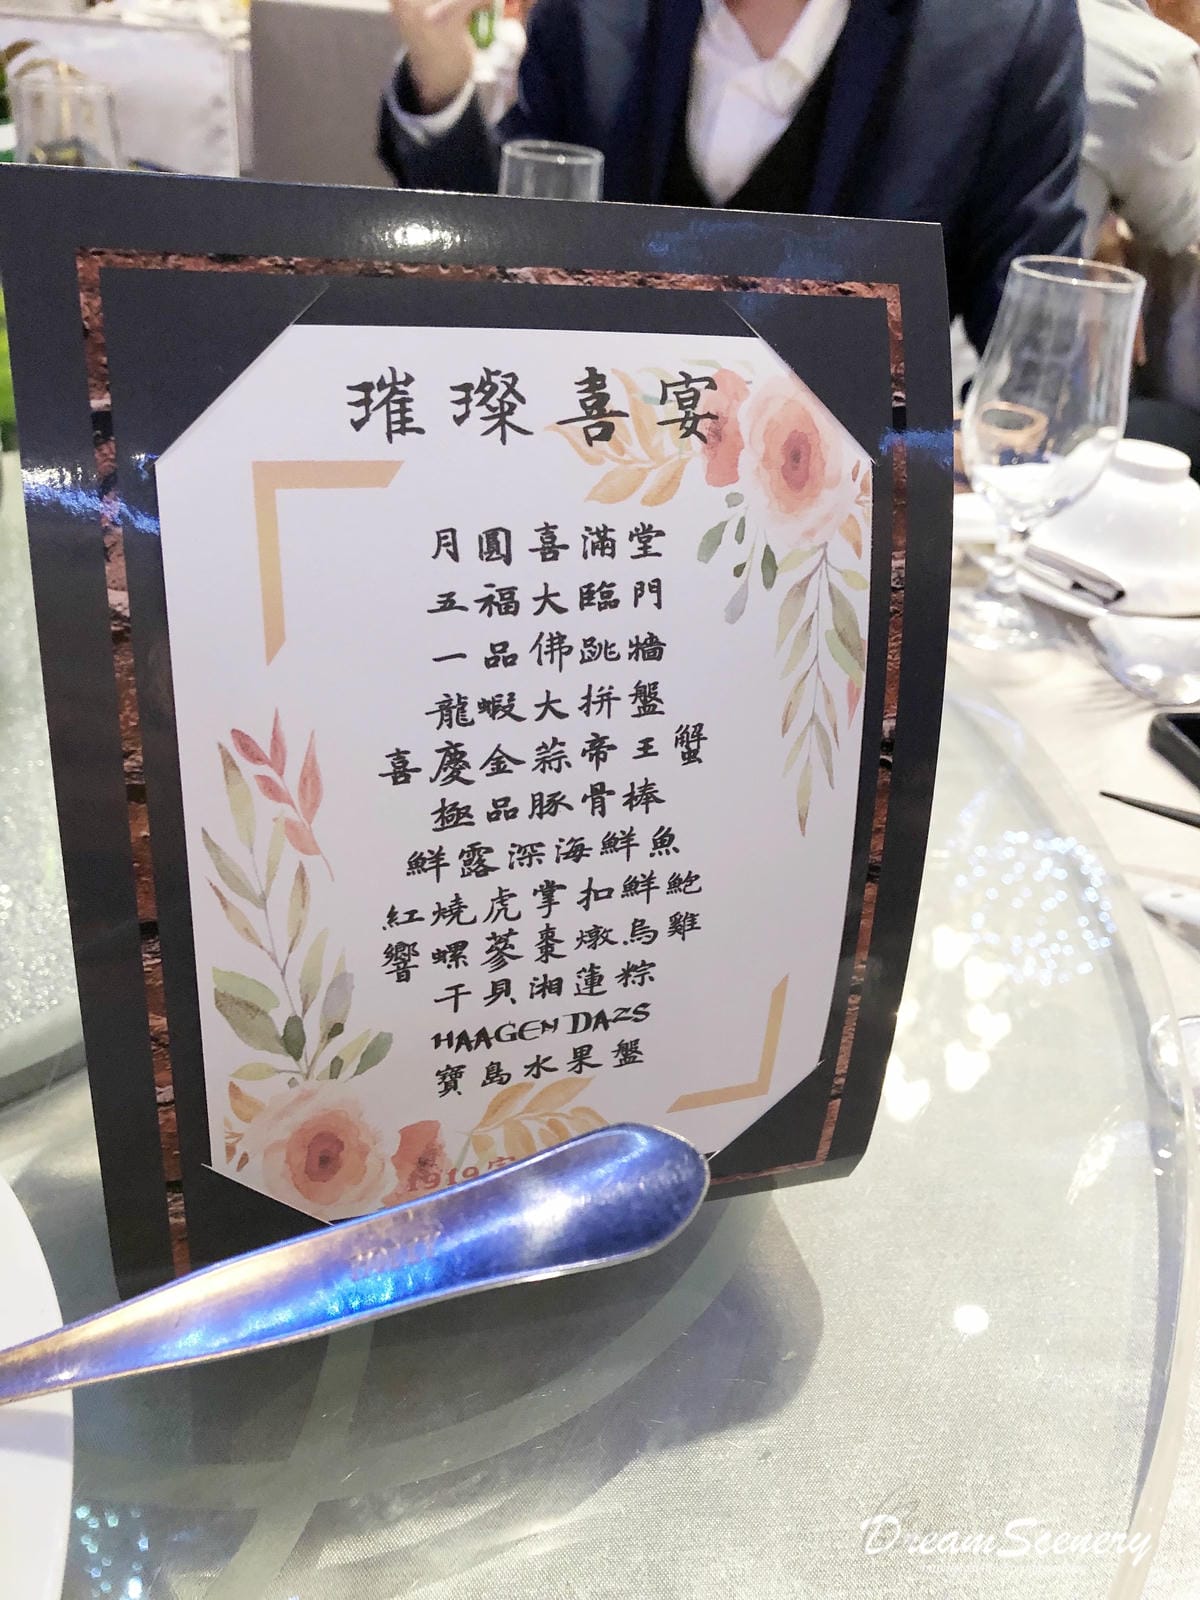 璀璨喜宴
月圓喜滿堂
五福大臨門
一品佛跳牆
龍蝦大拼盤
喜慶金蒜帝王蟹
極品豚骨棒
鮮露深海鮮魚
紅燒虎掌扣鮮鮑
響螺蔘棗燉烏雞
干貝湘蓮粽
HAAGEN DAZS
寶島水果盤
1919
DreamScenery